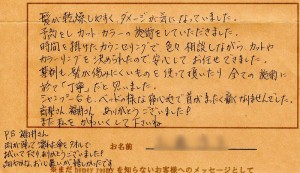 髪が乾燥しやすく、ダメージが気になっていました。
予約をしカットカラーの施術をしていただきました。
時間を掛けたカウンセリングで色々相談しながら、カットや
カラーリングを決められたので安心してお任せできました。
薬剤も、髪が傷みにくいものを使って頂いたり全ての施術に
於て「丁寧」だと思いました。
シャンプー台も、ベッドの様な寝心地で首がまったく痛くなりませんでした。
ありがとうございました!
また私をかわいくして下さいね
P.S 福井さん
雨が降って
拭いて下さりありがとうございました!
お名前
を知らないお客様へのメッセージとして